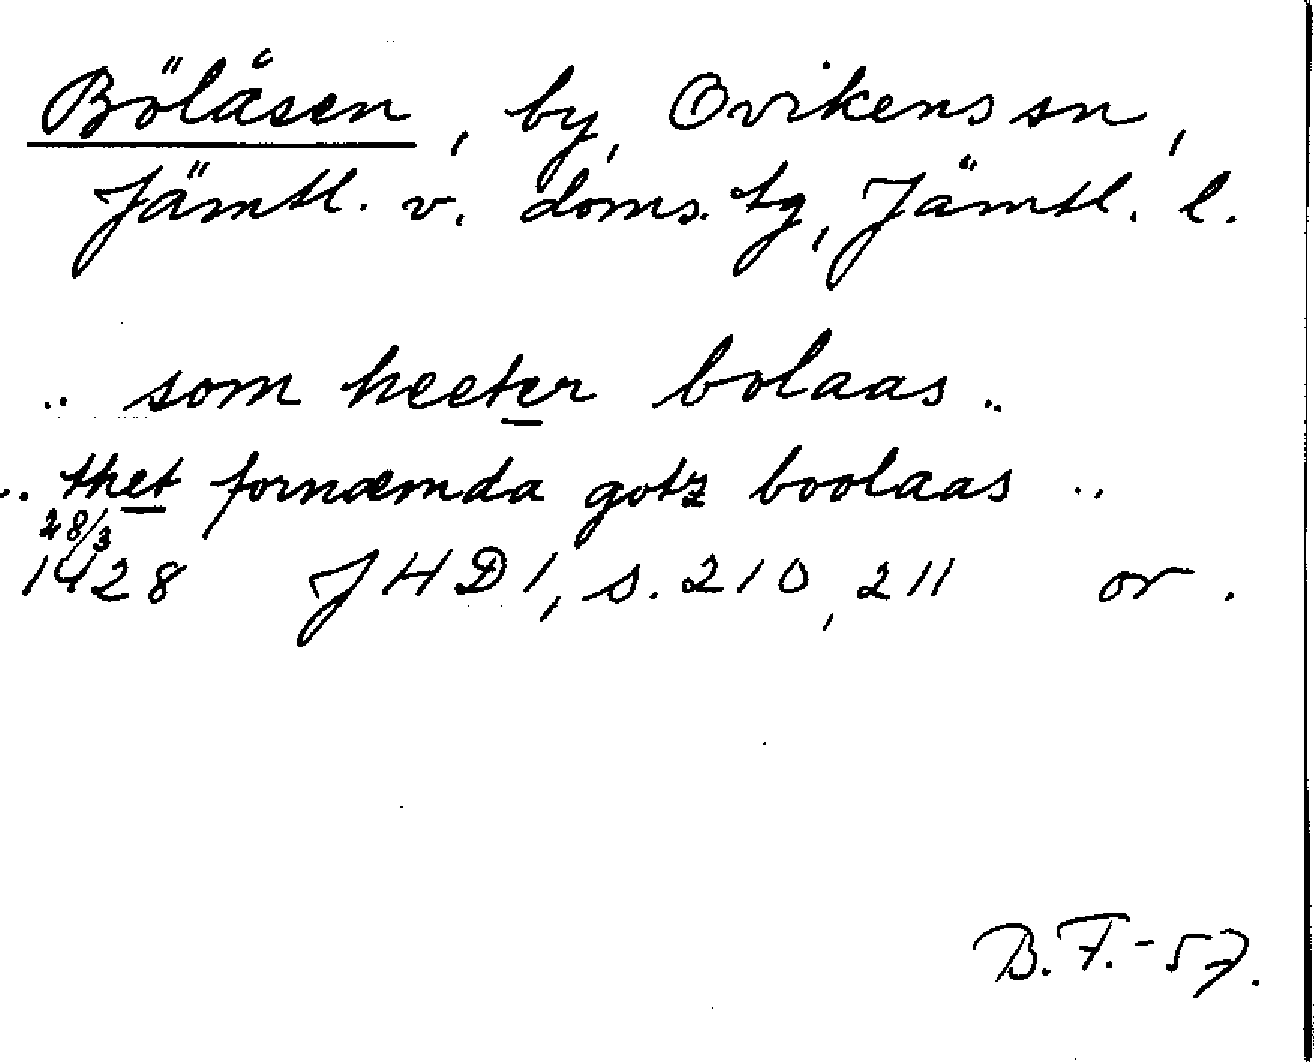 Böläsen, by, Ovikens sn,
Jämtl. v. doms. tg, Jämtl. l.
.. som heeter bolaas ..
.. thet fornæmda gotz boolaas ..
28/3
1428 JHD 1, s. 210, 211 or.
B. F. - 57.